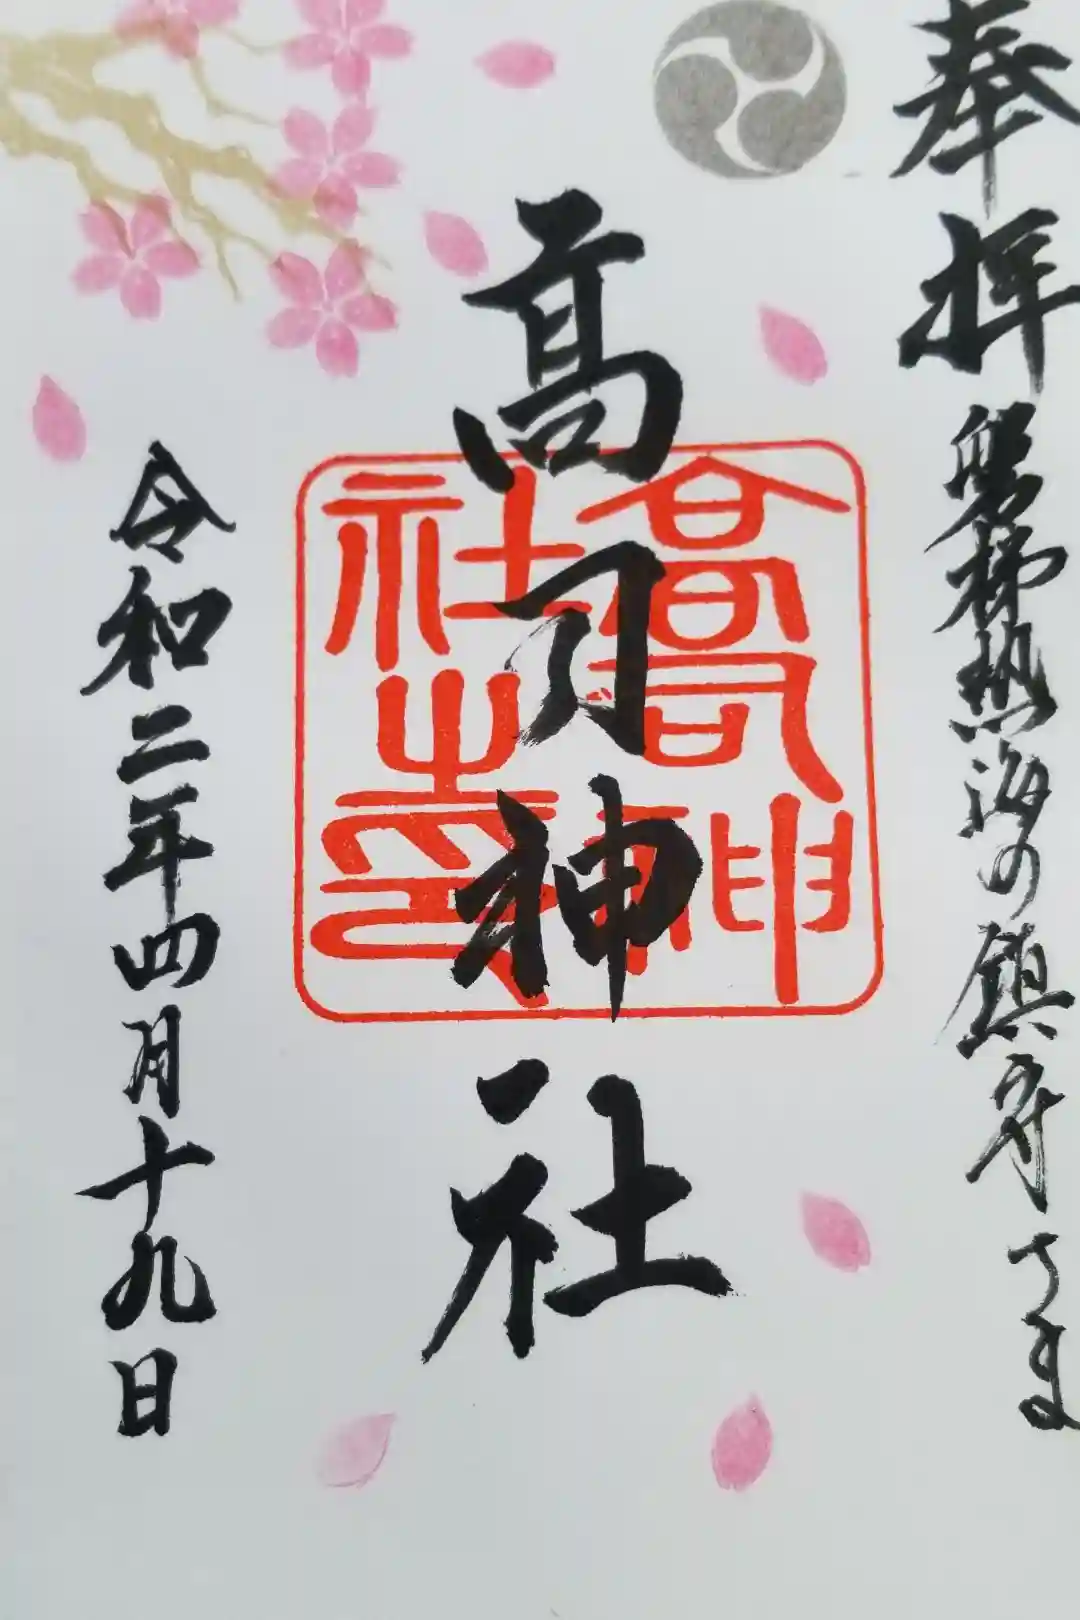 奉拝
磐梯熱海の鎮守さま
高司神社
高司神社之印
令和二年四月十九日